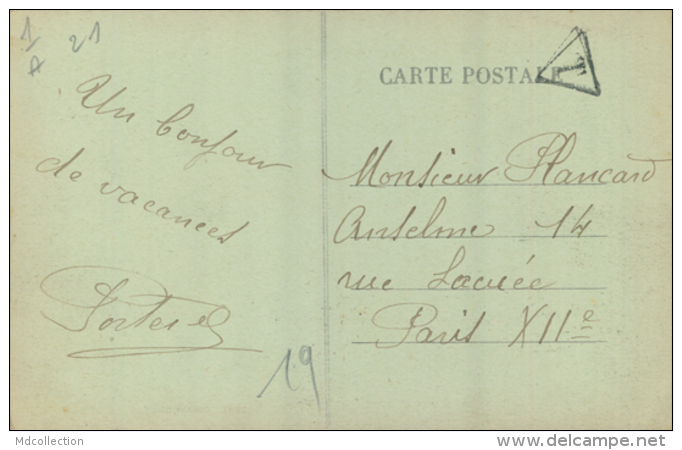 1
A
21
Un bonjour
de vacances
19
CARTE POSTALE
T
Monsieur Plancard
Anselme 14
rue Lacuée
Paris XIIe
Mdcollection
www.delcampe.net